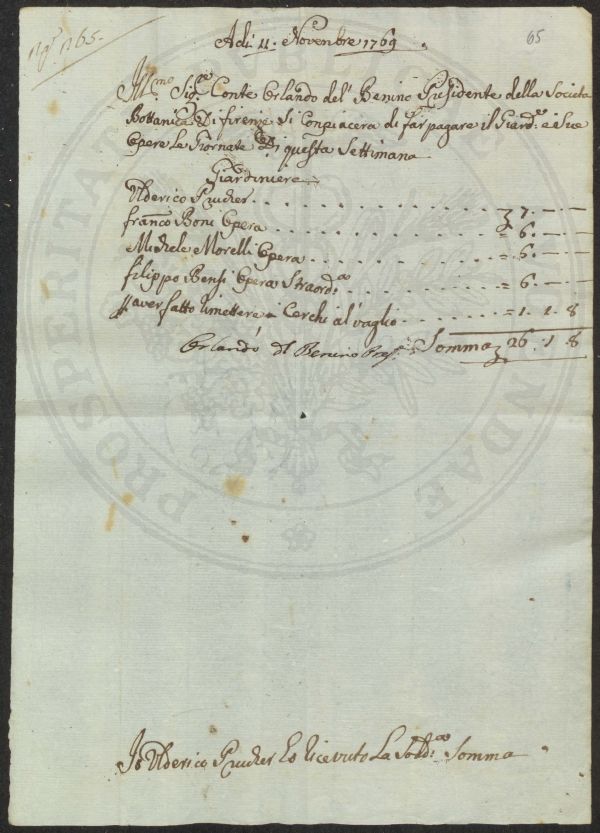 N.° 1765.
65
Adi 11. Novenbre 1769.
Ill.mo Sig.e Conte Orlando del' Benino Presidente della Societa
Bottanica Di firenze Si Conpiacera di far pagare il Giard.e e i Sue
Opere Le Giornate Di questa Settimana
Giardiniere
Ulderico Prucker . . . . . . 7. — —
franco Boni Opera . . . . . . = 6. — —
Michele Morelli Opera . . . . . . = 6. — —
filippo Bensi Opera Straord.ao . . . . . . = 6. — —
P aver fatto rimettere i Cerchi al vaglio . . . . . . = 1. 1. 8
Orlando del Benino Pres.e Somma 26. 1 8
Io Ulderico Prucker ho ricevuto La Sodd.a Somma
PROSPERITATI PUBLICAE AUGENDAE